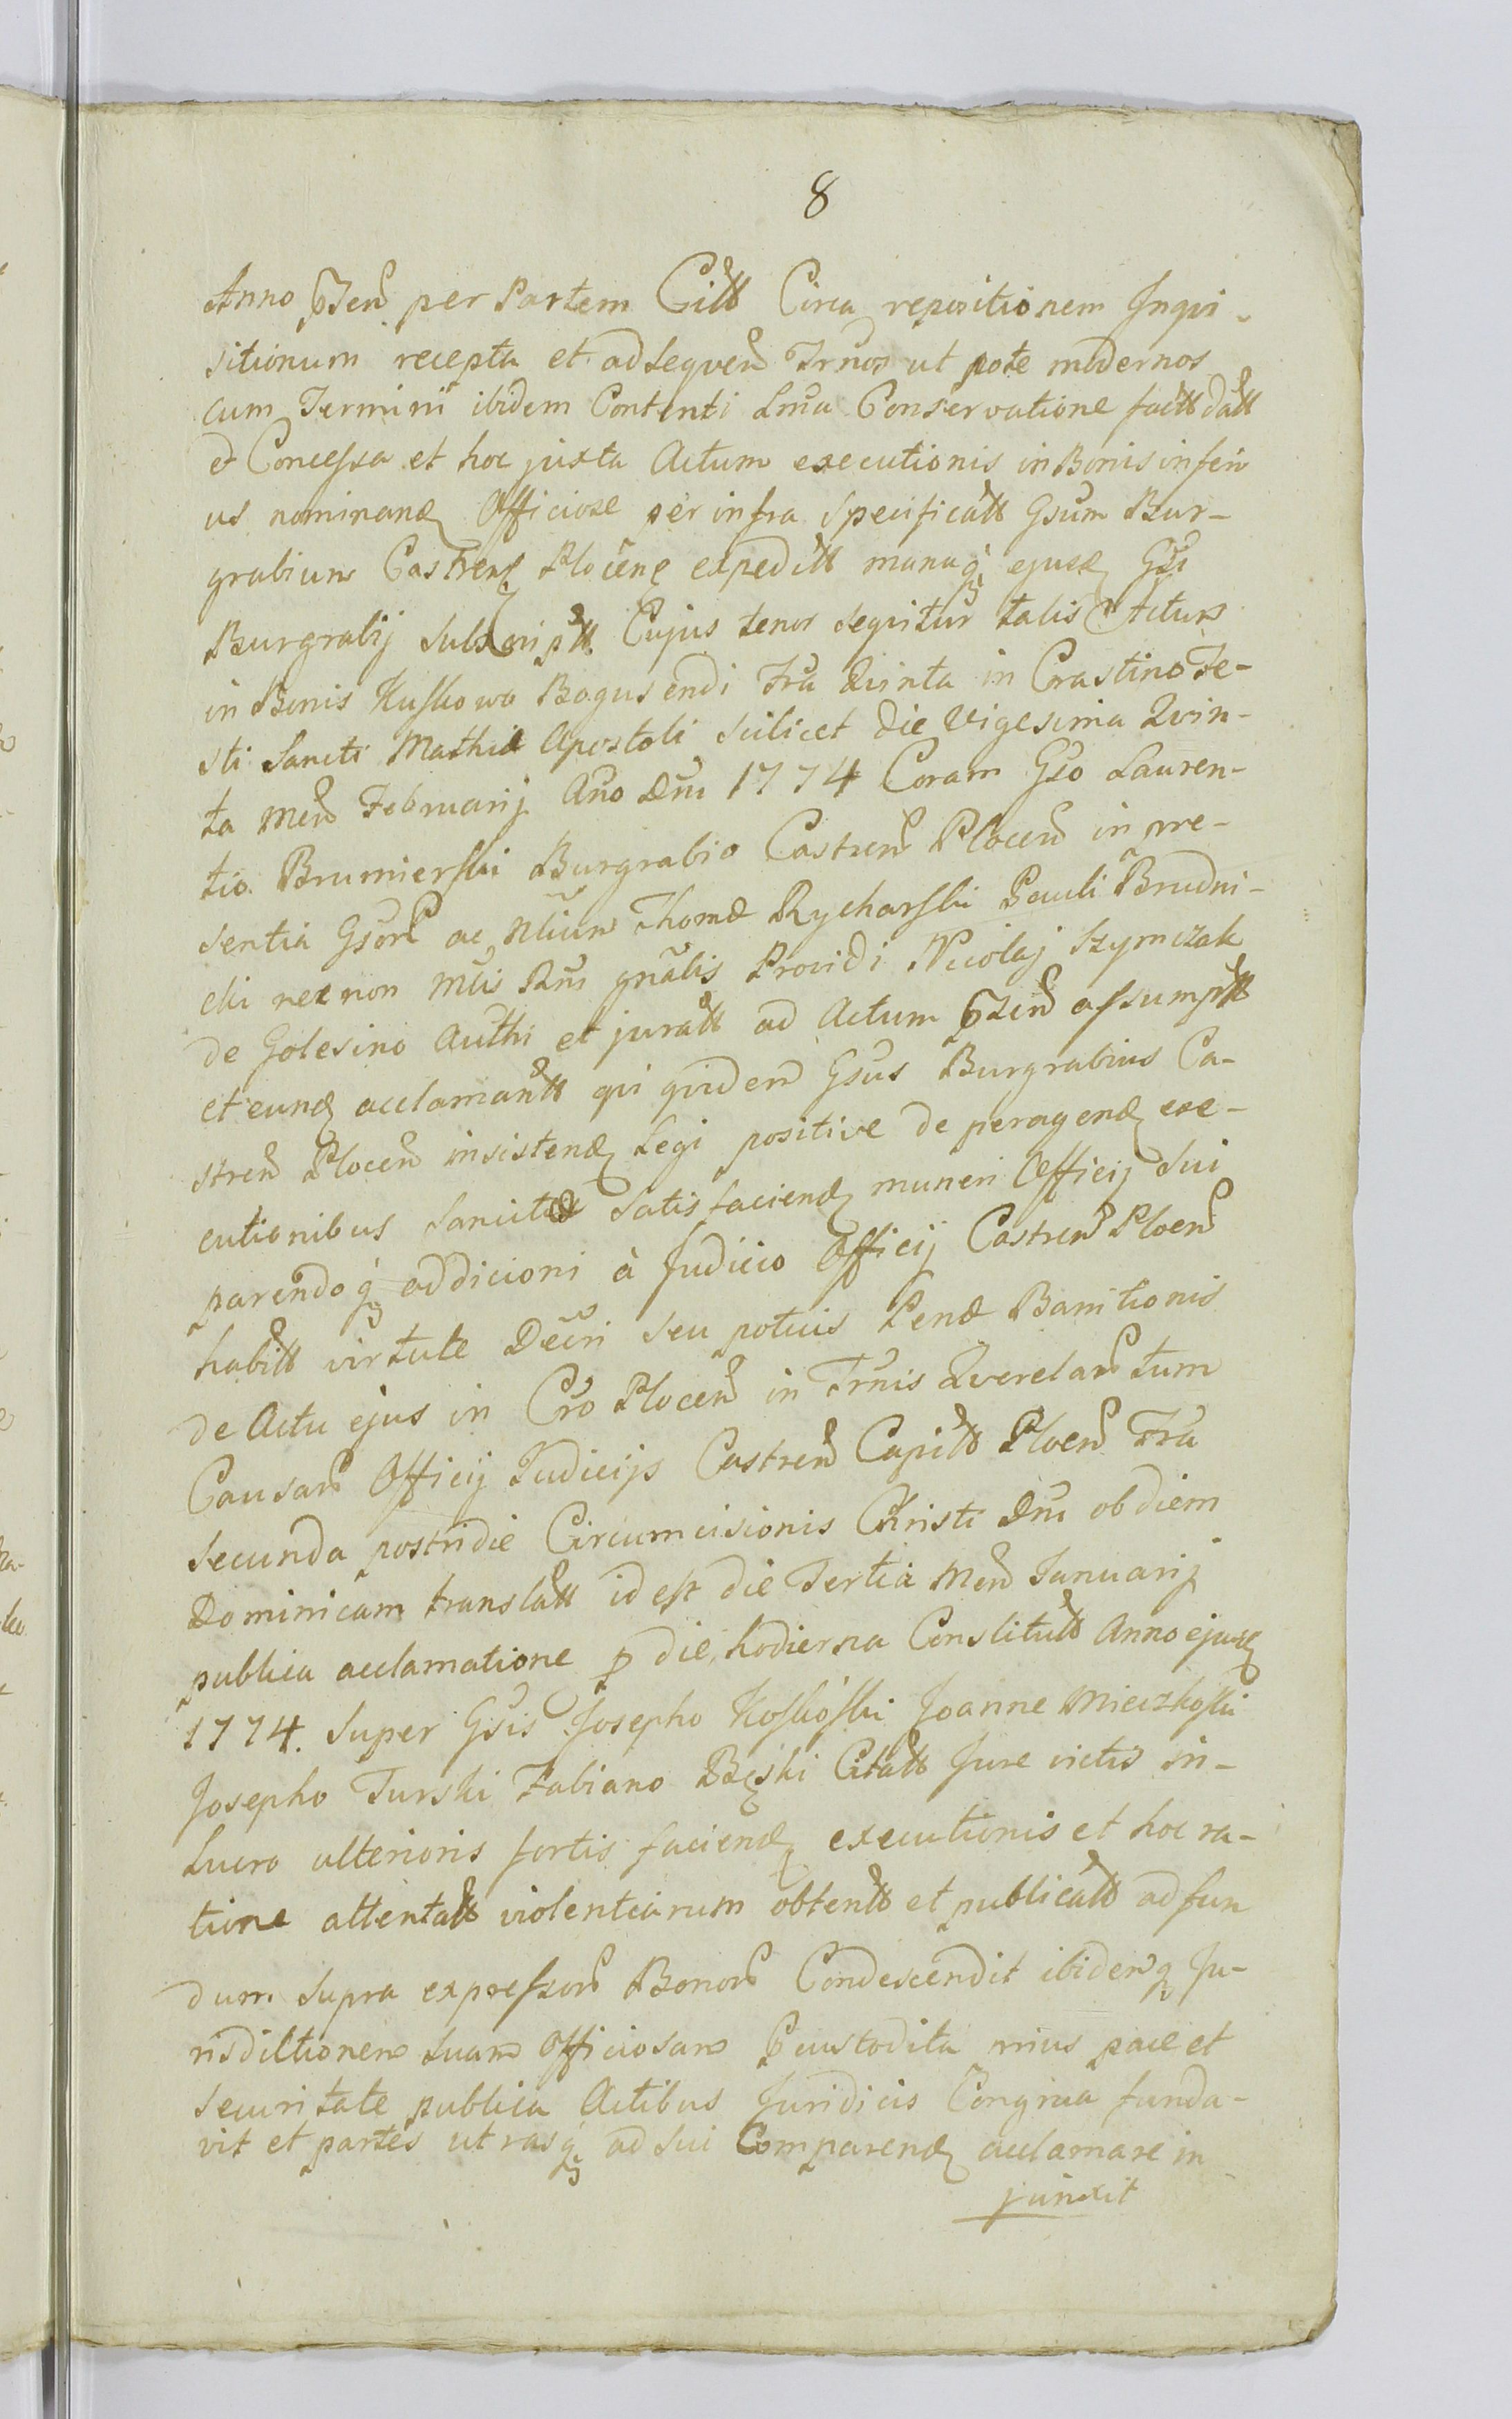 8
Anno p͞sen per Partem Citt Circa repositionem Inqui-
sitionum recepta et ad sequen Trños ut pote modernos
cum Termini ibidem Contenti Lm̃a Conservatione factt datt
et Concessa et hoc juxta Actum executionis in Bonis inferi
us nominand Officiose per infra specificatt Gsum Bur-
grabium Castren Plocene expeditt manuq̀ ejusd Gsi
Burgrabij Subscriptt Cujus tenor sequitur talis Actum
in Bonis Kuskowo Bogusendi Fra Quinta in Crastino Fe-
sti Sancti Mathiæ Apostoli scilicet die Vigesima Quin-
ta Men Februarij Año Dñi 1774 Coram Gso Lauren-
tio Brumierski Burgrabio Castren Plocen in præ-
sentia Gsor ac Nlium Thomæ Rycharski Pauli Brudni-
cki necnon Mlis Rñi gñalis Providi Nicolaj Szymczak
de Golesino Authi et juratt ad Actum p͞sen assumptt
et eund acclamantt qui quidem Gsus Burgrabius Ca-
stren Plocen insistend Legi positivæ de peragend exe-
cutionibus Sancitæ Satisfaciend muneri Officij Sui
parendoq̀ addicioni à Judicio Officij Castren Plocen
habitt virtute Decri seu potius Penæ Banitionis
de Actu ejus in Cro Plocen in Trñis Querelar tum
Causar Officij Judicijs Castren Capitt Plocen Fra
Secunda postridie Circumcisionis Christi Dñi ob diem
Dominicam translatt id est die Tertia Men Januarij
publica acclamatione p die hodierna Constitutt Anno ejusd
1774. Super Gsis Josepho Koskoski Joanne Mieczkoski
Josepho Turski Fabiano Bęski Citatt Jure victis in-
Lucro ulterioris fortis faciend executionis et hoc ra-
tione attentatt violentiarum obtentt et publicatt ad fun
dum supra expressor Bonor Condescendit ibidemq̀ Ju-
risdictionem suam Officiosam p custodita prius pace et
securitate publica Actibus Juridicis Congrua funda-
vit et partes utrasq̀ ad sui Comparend acclamare in
junxit